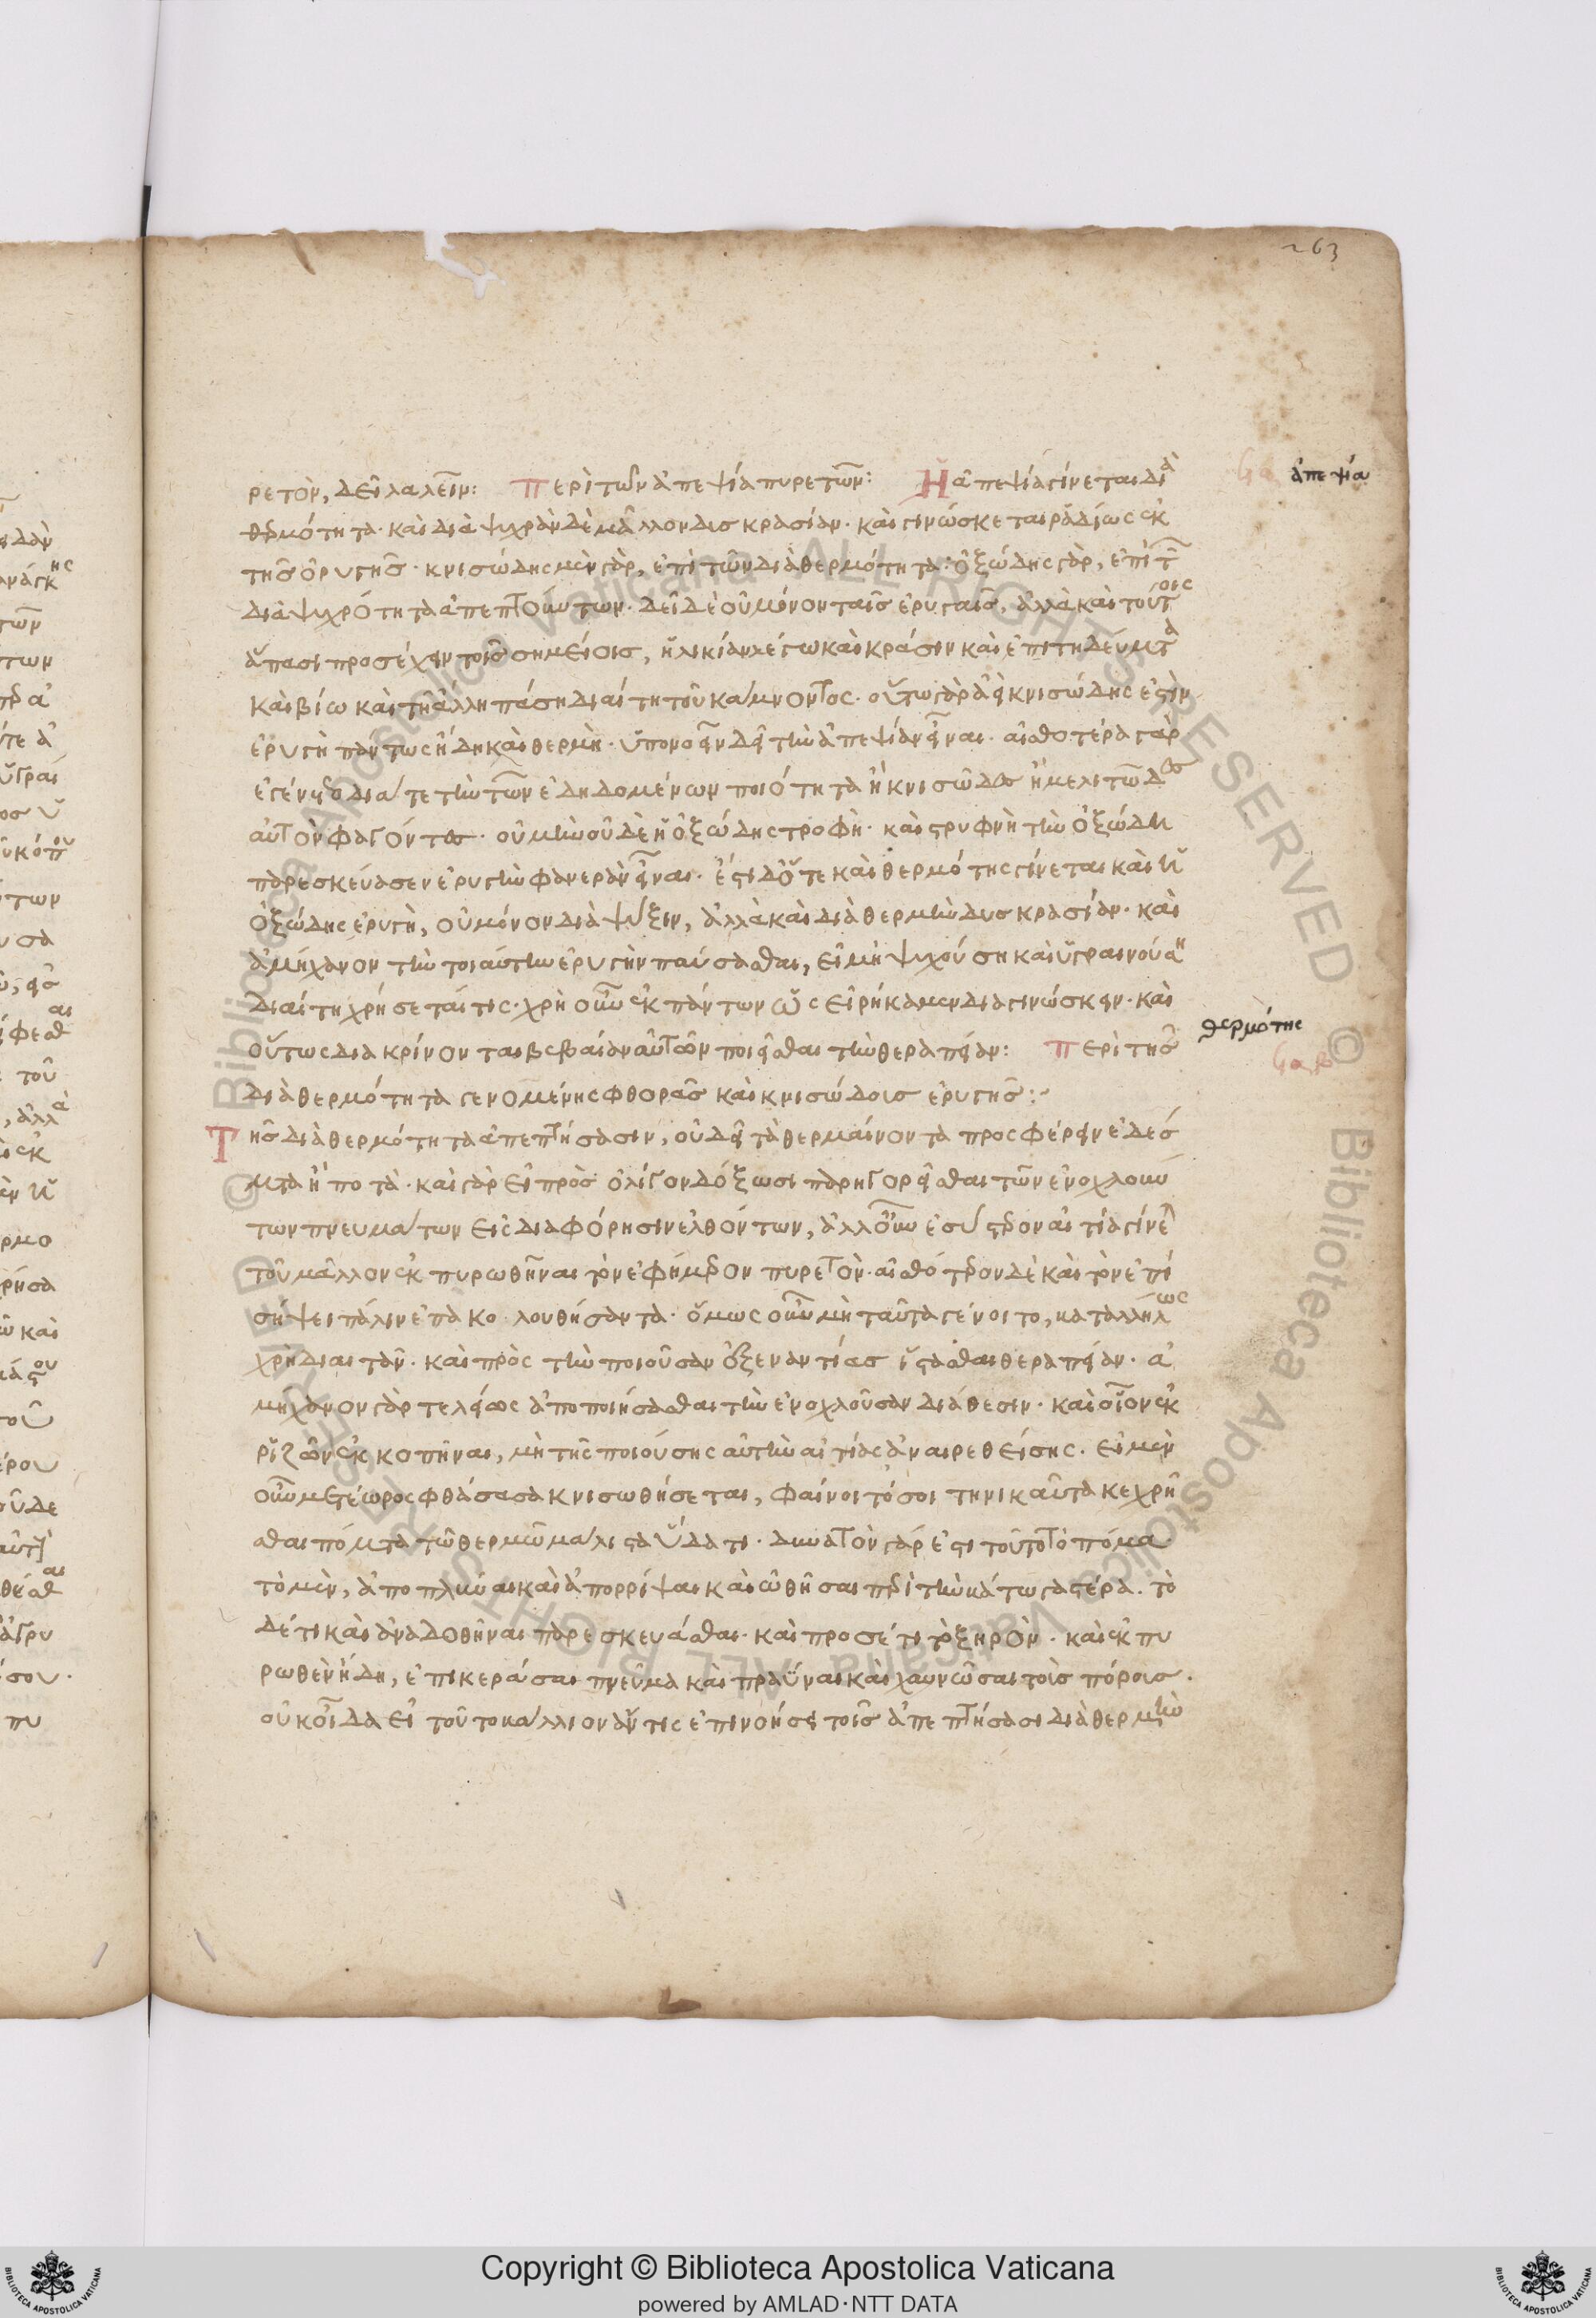 263
ρετὸν, δεῖ λαλεῖν: Περὶ τῶν ἀπεψία πυρετῶν: Ἡ ἀπεψία γίνεται διὰ
ἀπεψία
θερμότητα· καὶ διὰ ψυχρὰν δὲ μᾶλλον δισκρασίαν· καὶ γινώσκεται ῥαδίως ἐκ
τῆς ὀρυγῆς· κνισώδης μὲν γὰρ, ἐπὶ τῶν διὰ θερμότητα· ὀξώδης γὰρ, ἐπὶ τῶν
διὰ ψυχρότητα ἀπεπτούντων· δεῖ δὲ οὐ μόνον ταῖς ἐρυγαῖς, ἀλλὰ καὶ τούτοις
ἅπασι προσέχειν τοῖς σημείοις, ἡλικίαν λέγω καὶ κράσιν καὶ ἐπιτηδεύματα
καὶ βίω καὶ τῆ ἄλλη πάση διαίτη τοῦ κάμνοντος· οὕτω γὰρ εἰ κνισώδης ἐστὶν
ἐρυγὴ πάντως ἤδη καὶ θερμὴ· ὑπονοεῖν δεῖ τὴν ἀπεψίαν εἶναι· αἰσθοτέρα γὰρ
ἐγένετο διά τε τὴν τῶν ἐδηδομένων ποιότητα ἢ κνισῶδες ἢ μελιτῶδες
αὐτὸν φαγόντες· οὐ μὴν οὐδὲ ἡ ὀξώδης τροφὴ· καὶ στρυφνὴ τὴν ὀξώδη
παρεσκεύασεν ἐρυγὴν φανερὰν εἶναι· ἔστι δὅτε καὶ θερμότης γίνεται καὶ ἡ
ὀξώδης ἐρυγὴ, οὐ μόνον διὰ ψύξιν, ἀλλὰ καὶ διὰ θερμὴν δυσκρασίαν· καὶ
ἀμήχανον τὴν τοιαύτην ἐρυγὴν παύσασθαι, εἰ μὴ ψυχούση καὶ ὑγραινούση
διαίτη χρήσεταί τις· χρὴ οὖν ἐκ πάντων ὡς εἰρήκαμεν διαγινώσκειν· καὶ
οὕτως διακρίνονται βεβαίαν αὐτῶν ποιεῖσθαι τὴν θεραπείαν: Περὶ τῆς
θερμότης
διὰ θερμότητα γενομένης φθορᾶς καὶ κνισώδους ἐρυγῆς:
Τῆς διὰ θερμότητα ἀπεπτήσασιν, οὐ δεῖ τὰ θερμαίνοντα προσφέρειν ἐδέσ
ματα ἢ ποτὰ· καὶ γὰρ εἰ πρὸς ὀλίγον δόξωσι παρηγορεῖσθαι τῶν ἐνοχλούν
των πνευμάτων εἰς διαφόρησιν ἐλθόντων, ἀλλοὖν ἐσύστερον αἰτία γίνεται
τοῦ μᾶλλον ἐκπυρωθῆναι τὸν ἐφήμερον πυρετὸν· αἰσθότερον δὲ καὶ τὸν ἐπὶ
σήψει πάλιν ἐπακολουθήσαντα· ὅμως οὖν μὴ ταῦτα γένοιτο, καταλλήλως
χρὴ διαιτᾶν· καὶ πρὸς τὴν ποιοῦσαν ἐξεναντίας ἵστασθαι θεραπείαν· ἀ
μήχανον γὰρ τελείως ἀποποιήσασθαι τὴν ἐνοχλοῦσαν διάθεσιν· καὶ οἷον ἐκ
ῥιζῶν ἐκκοπῆναι, μὴ τῆς ποιούσης αὐτὴν αἰτίας ἀναιρεθείσης. εἰ μὲν
οὖν μετέωρος φθάσασα κνισωθήσεται, φαίνοιτό σοι τηνικαῦτα κεχρῆ
σθαι πόματα τῶ θερμῶ μάλιστα ὕδατι· δυνατὸν γάρ ἐστι τοῦτο τὸ πόμα
τὸ μὲν, ἀποπλύναι καὶ ἀπορρίψαι καὶ ὠθῆσαι περὶ τὴν κάτω γαστέρα. τὸ
δέ τι καὶ ἀναδοθῆναι παρεσκευάσθαι· καὶ προσέτι τὸ ξηρὸν· καὶ ἐκπυ
ρωθὲν ἤδη, ἐπικεράσαι πνεῦμα καὶ πραῧναι καὶ χαυνῶσαι τοὶς πόροις.
οὐκ οἶδα εἰ τοῦτο κάλλιον ἄν τις ἐπινοήσει τοῖς ἀπεπτήσασι διὰ θερμὴν
Copyright © Biblioteca Apostolica Vaticana
powered by AMLAD·NTT DATA